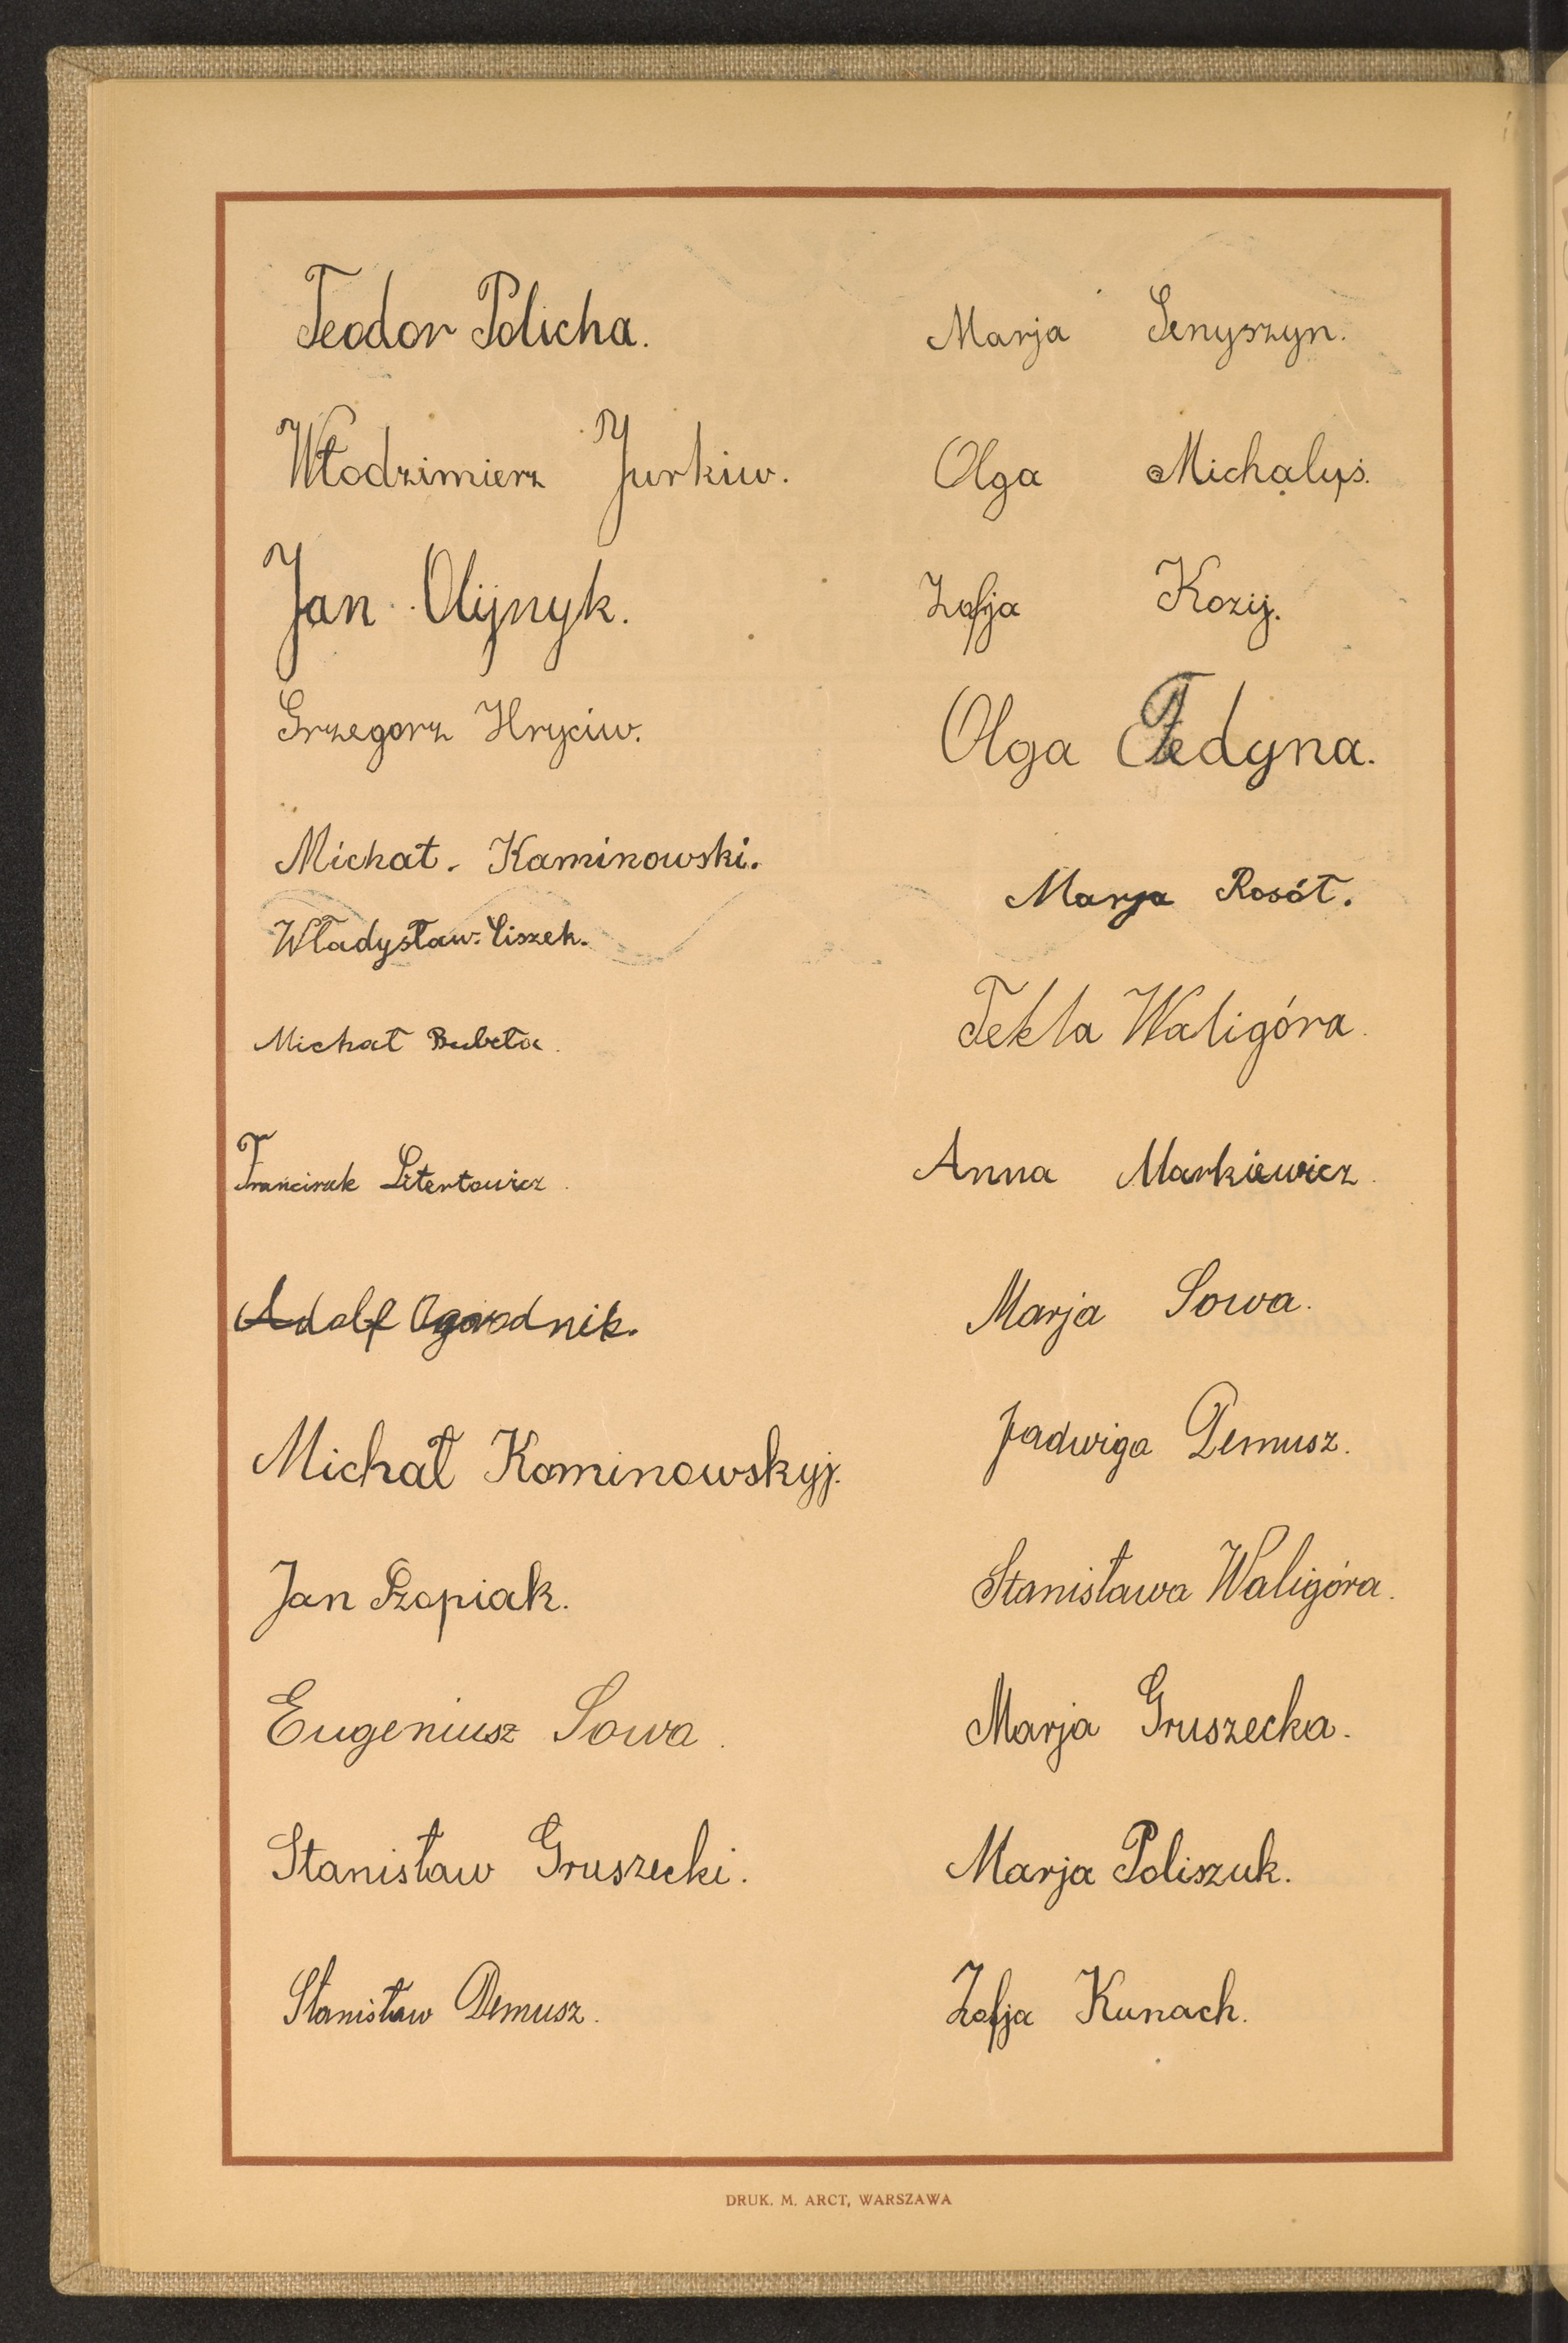 Teodor Policha.
Włodzimierz Jurkiw.
Jan Olijnyk.
Grzegorz Hryciw.
Michał. Kaminowski.
Władysław. Liszek.
Michał Bubeła.
Franciszek Literłowicz.
Adolf Ogorodnik.
Michał Kominowskyj.
Jan Rzopiak.
Eugeniusz Sowa.
Stanisław Gruszecki.
Stanisław Demusz.
Marja Senyszyn.
Olga Michalyś.
Zofja Kozij.
Olga Fedyna.
Marja Rosół.
Tekla Waligóra.
Anna Markiewicz.
Marja Sowa.
Jadwiga Demusz.
Stanisława Waligóra.
Marja Gruszecka.
Marja Poliszuk.
Zofja Kunach.
DRUK. M. ARCT, WARSZAWA